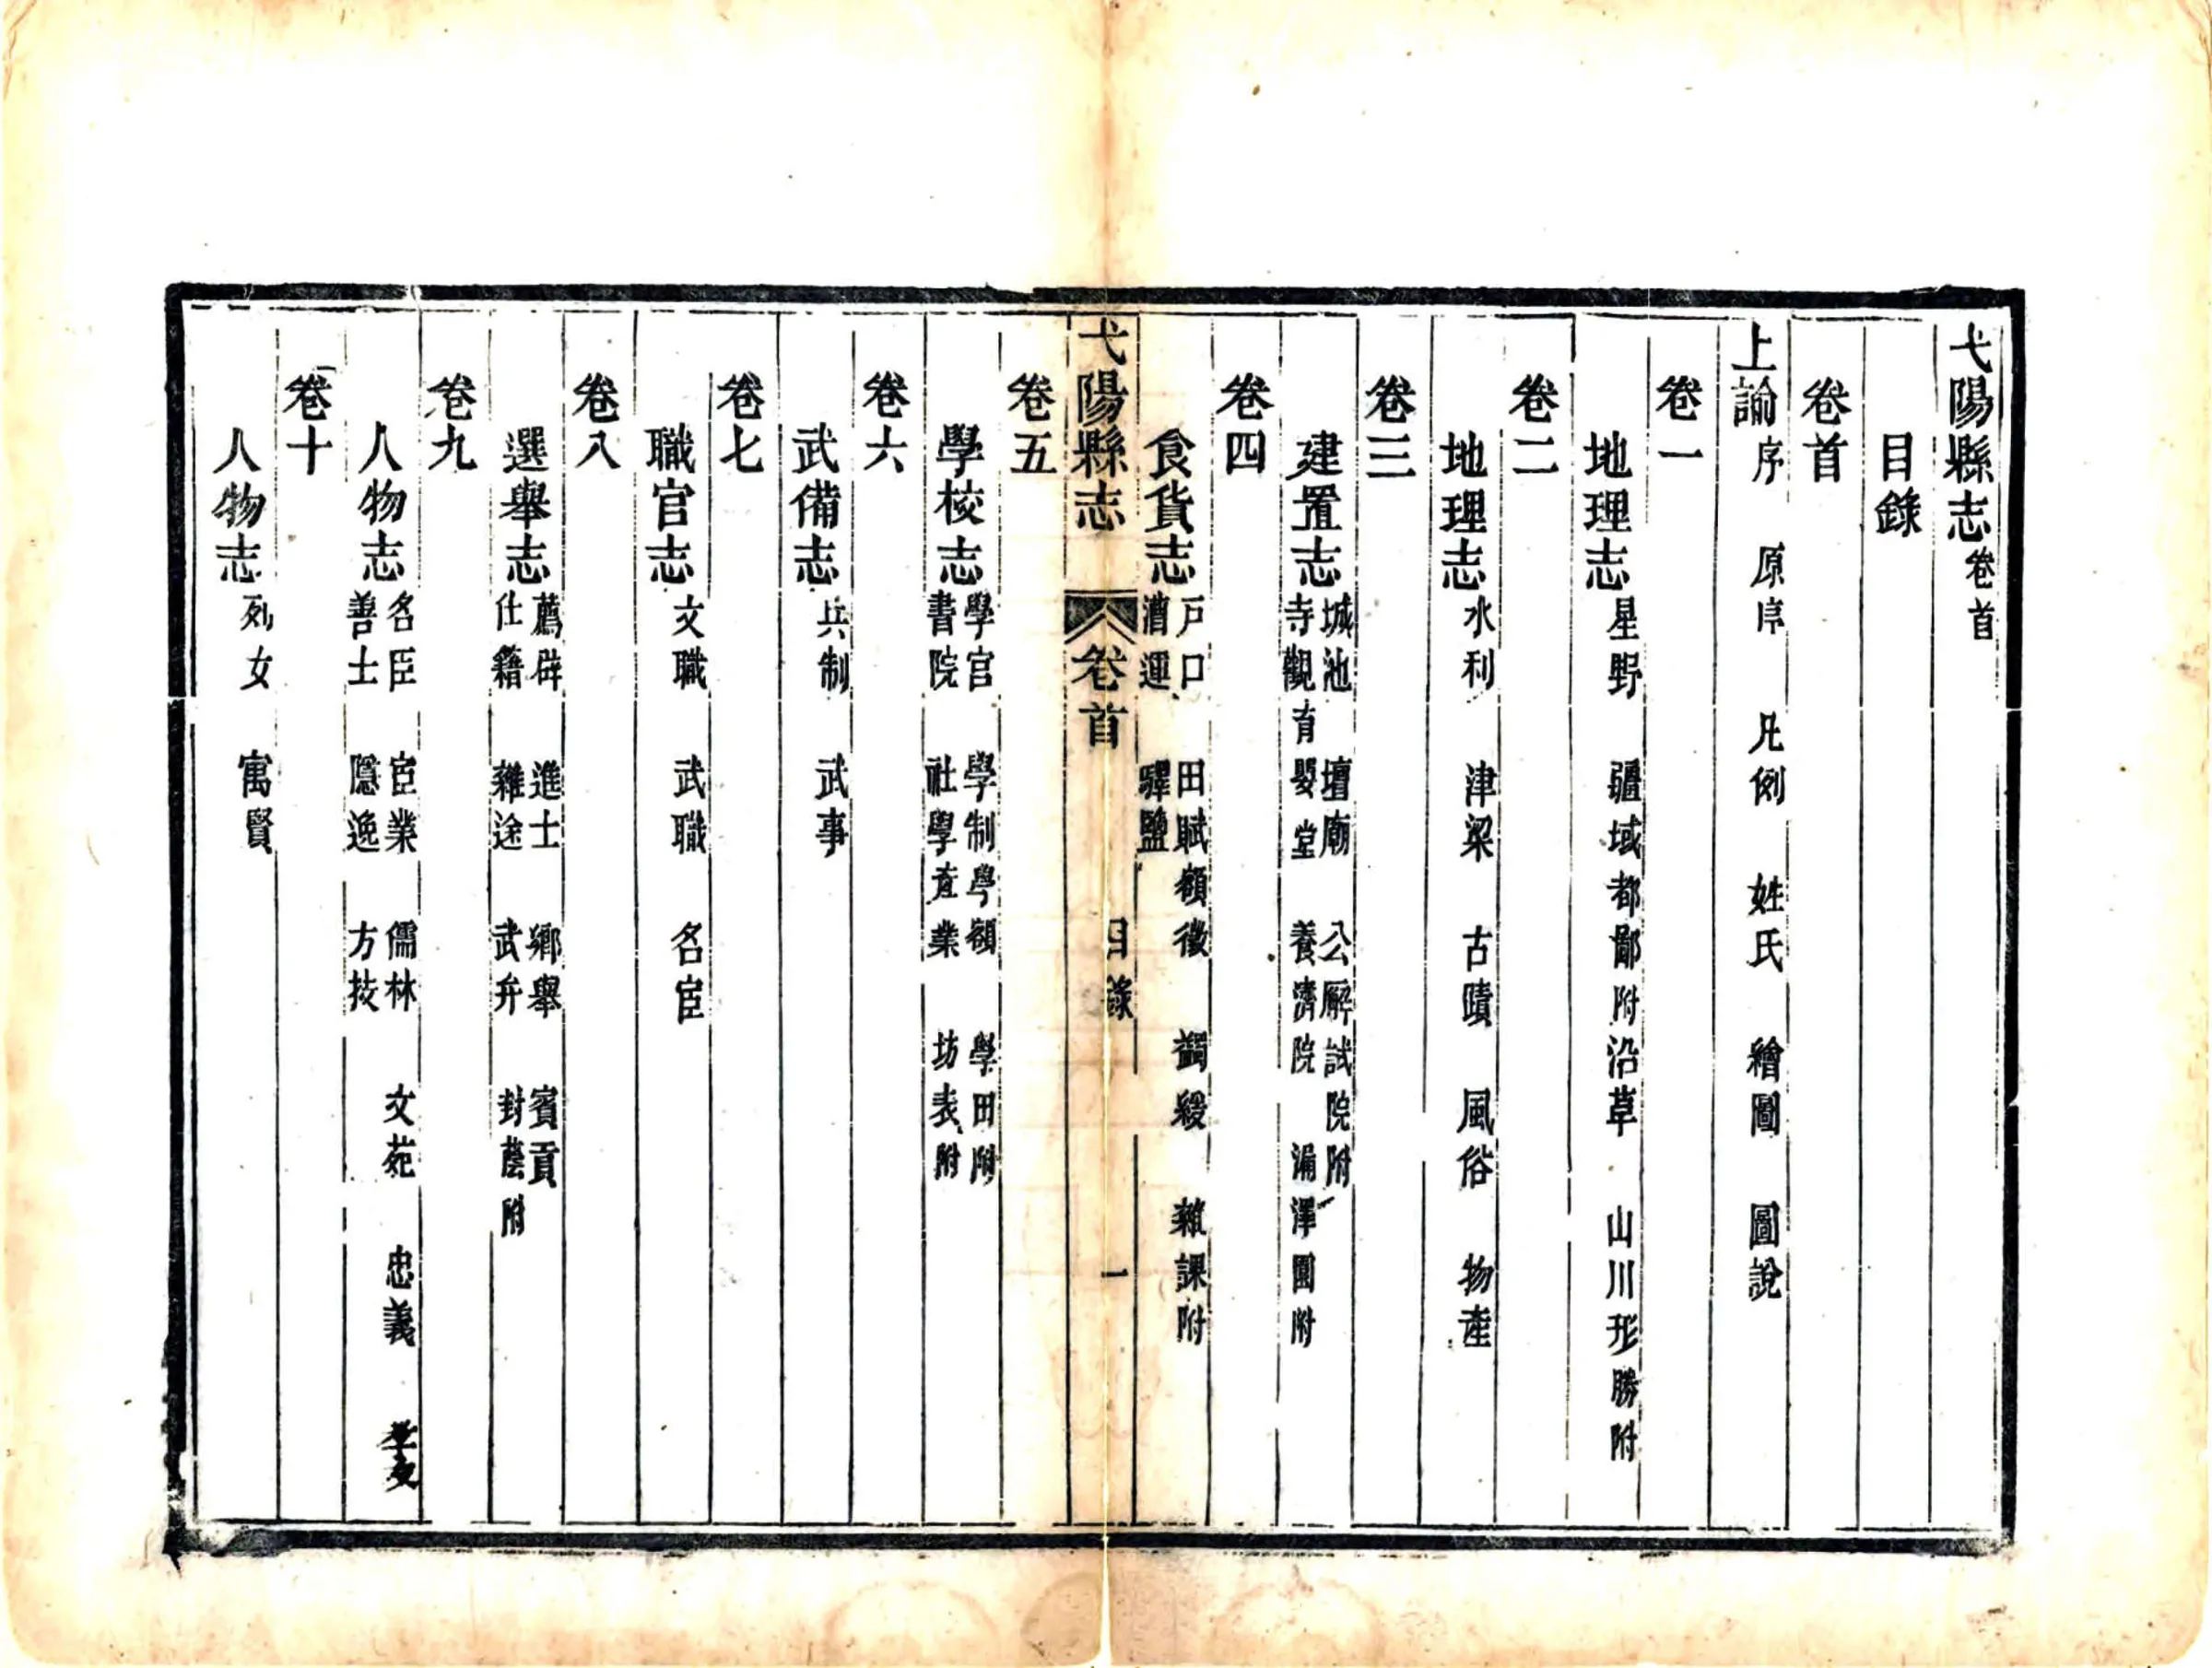 弋陽縣志卷首
目錄
卷首
上諭 序 原序 凡例 姓氏 繪圖 圖說
卷一
地理志 星野 疆域都鄙附 沿革 山川形勝附
卷二
地理志 水利 津梁 古蹟 風俗 物產
卷三
建置志 城池 壇廟 公廨試院附
寺觀 育嬰堂 養濟院 漏澤園附
卷四
食貨志 戶口 田賦額徵 蠲緩 雜課附
漕運 驛鹽
弋陽縣志 卷首 目錄 一
卷五
學校志 學宫 學制學額 學田附
書院 社學產業 坊表附
卷六
武備志 兵制 武事
卷七
職官志 文職 武職 名宦
卷八
選舉志 薦辟 進士 鄉舉 賓貢
仕籍 雜途 武弁 封蔭附
卷九
人物志 名臣 宦業 儒林 文苑 忠義 孝友
善士 隱逸 方技
卷十
人物志 列女 寓賢